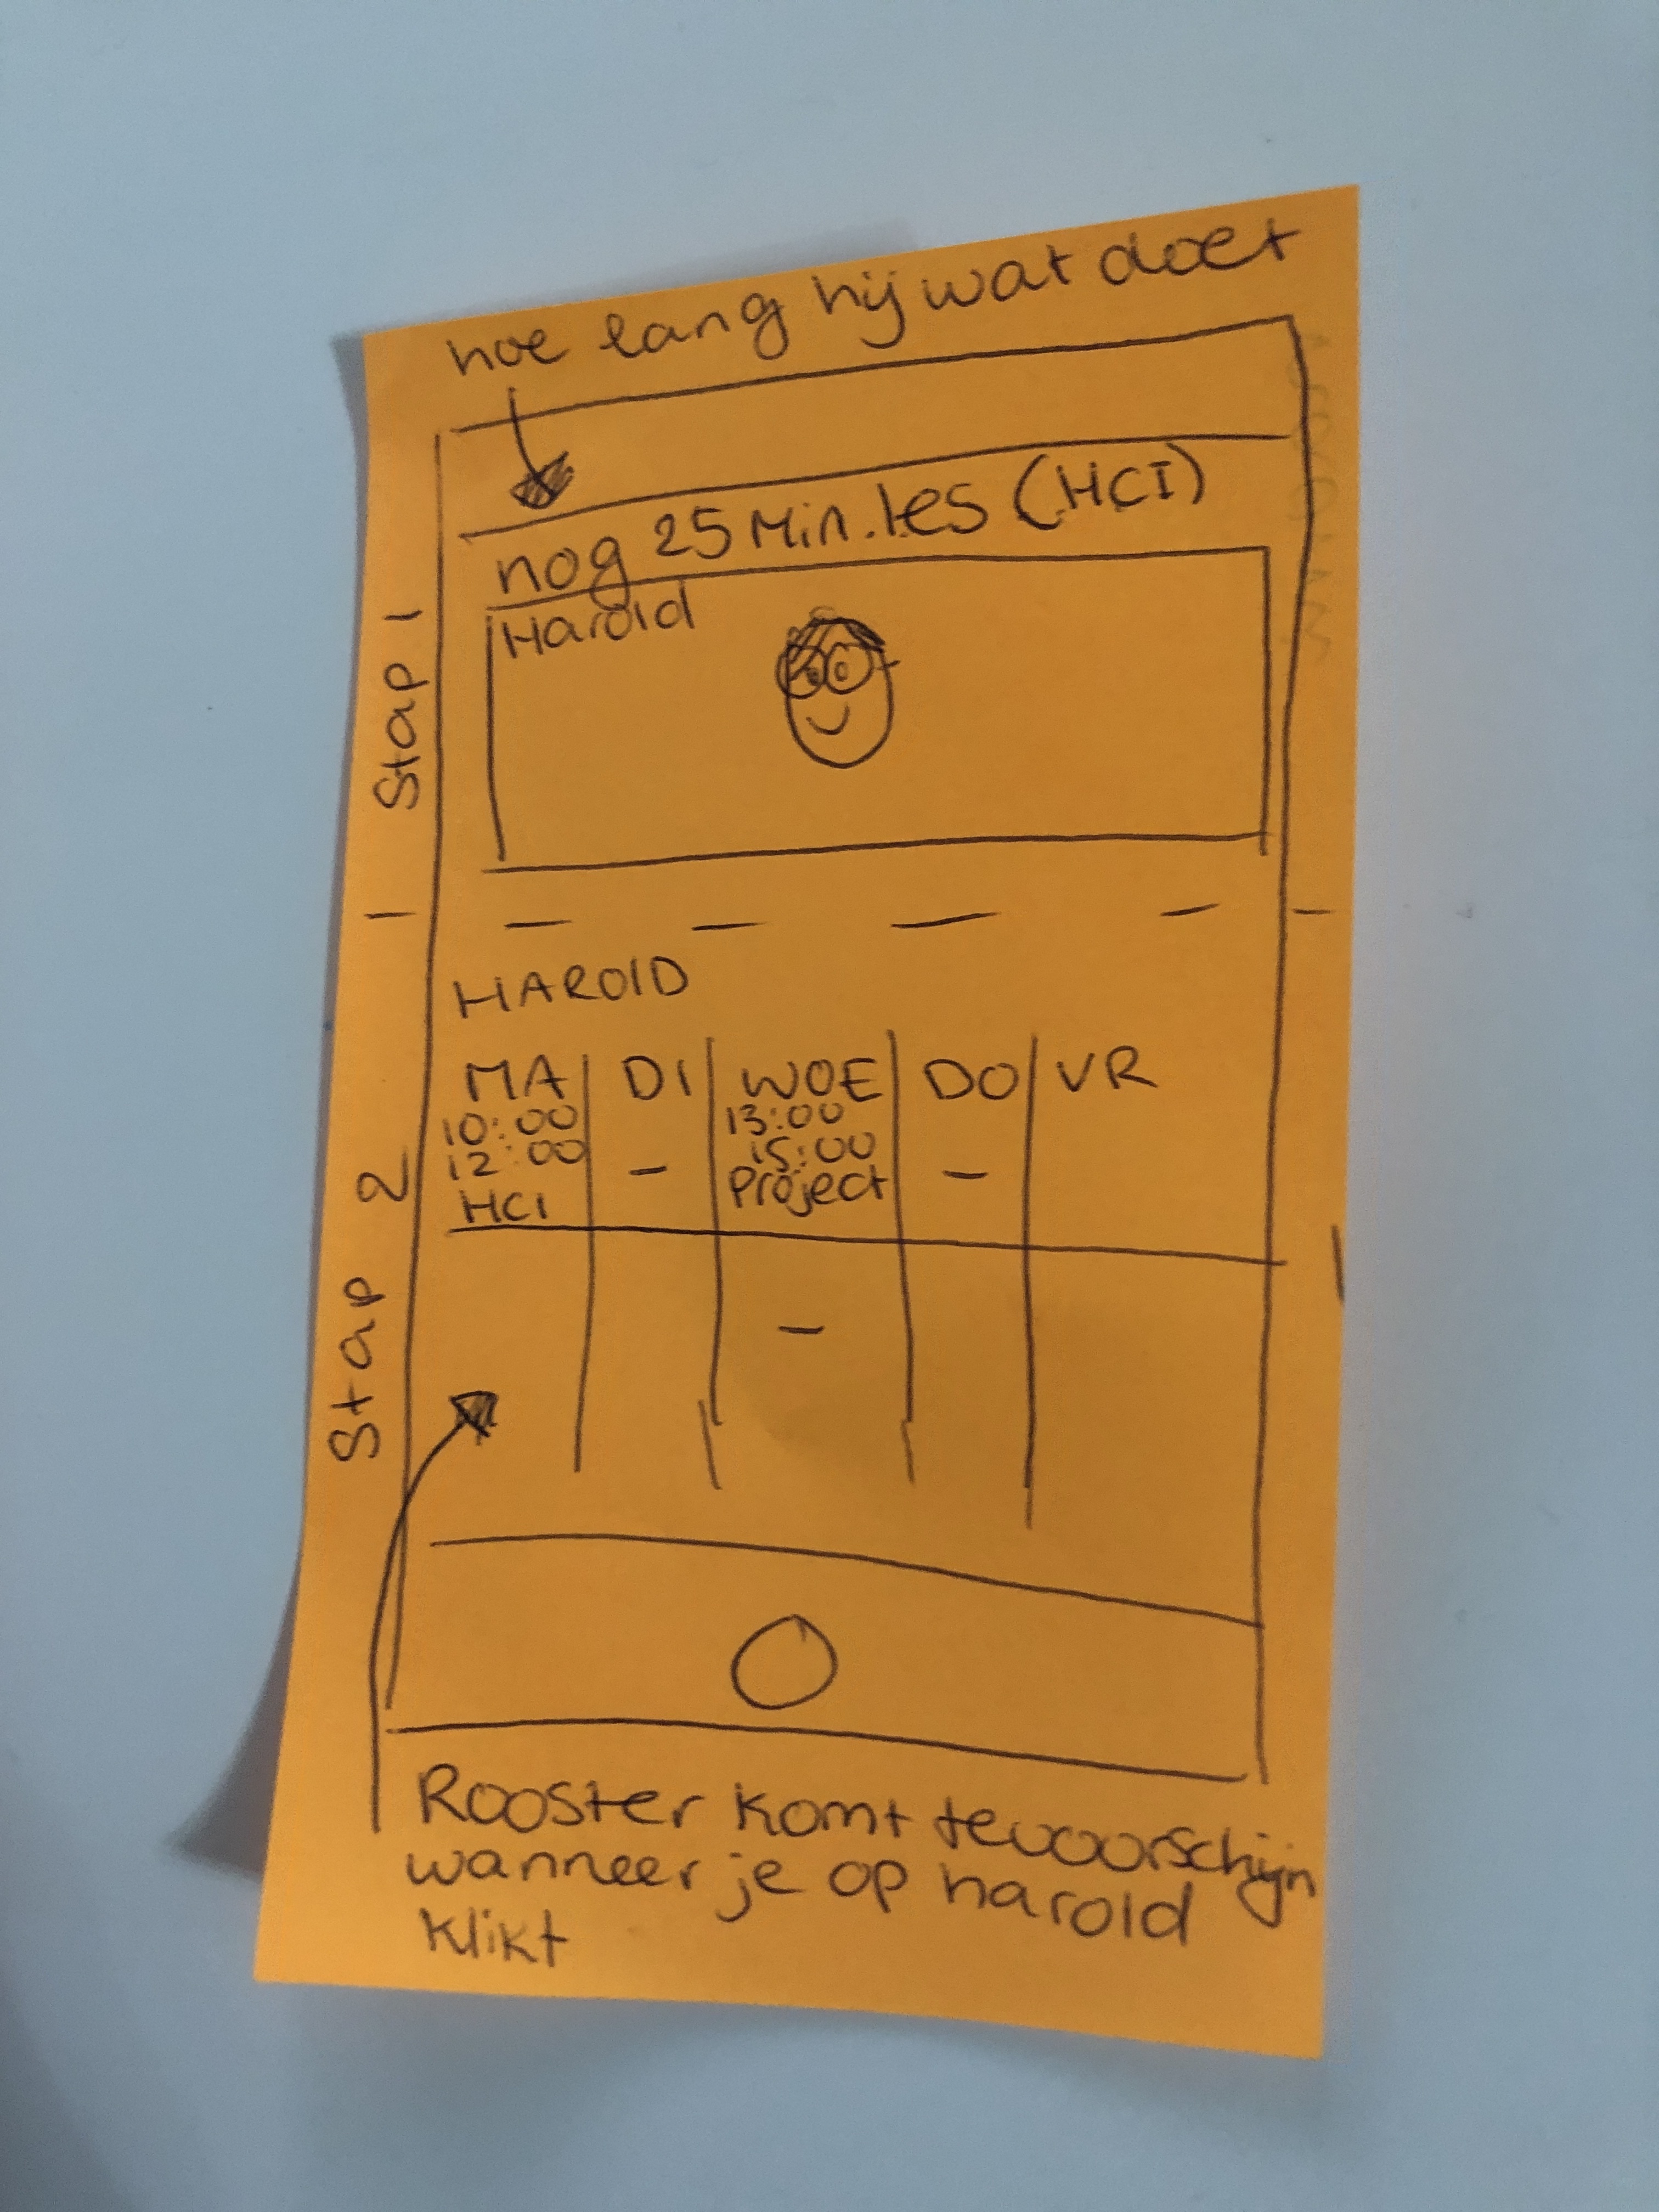 hoe lang hij wat doet
nog 25 Min. les (HCI)
Harold
Stap 1
HAROLD
MA DI WOE DO VR
10:00 13:00
12:00 - 15:00 -
HCI Project
-
Stap 2
Rooster komt tevoorschijn
wanneer je op harold
klikt